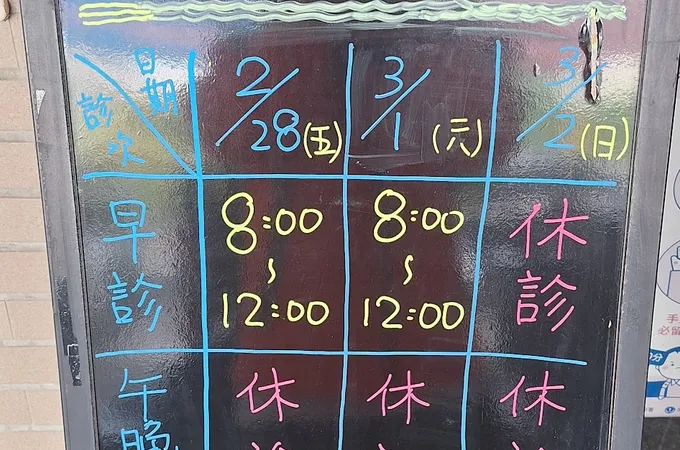 日期
診次
2/28(五)
3/1(六)
3/2(日)
早診
8:00~12:00
8:00~12:00
休診
午晚
休
休
休
手
必留